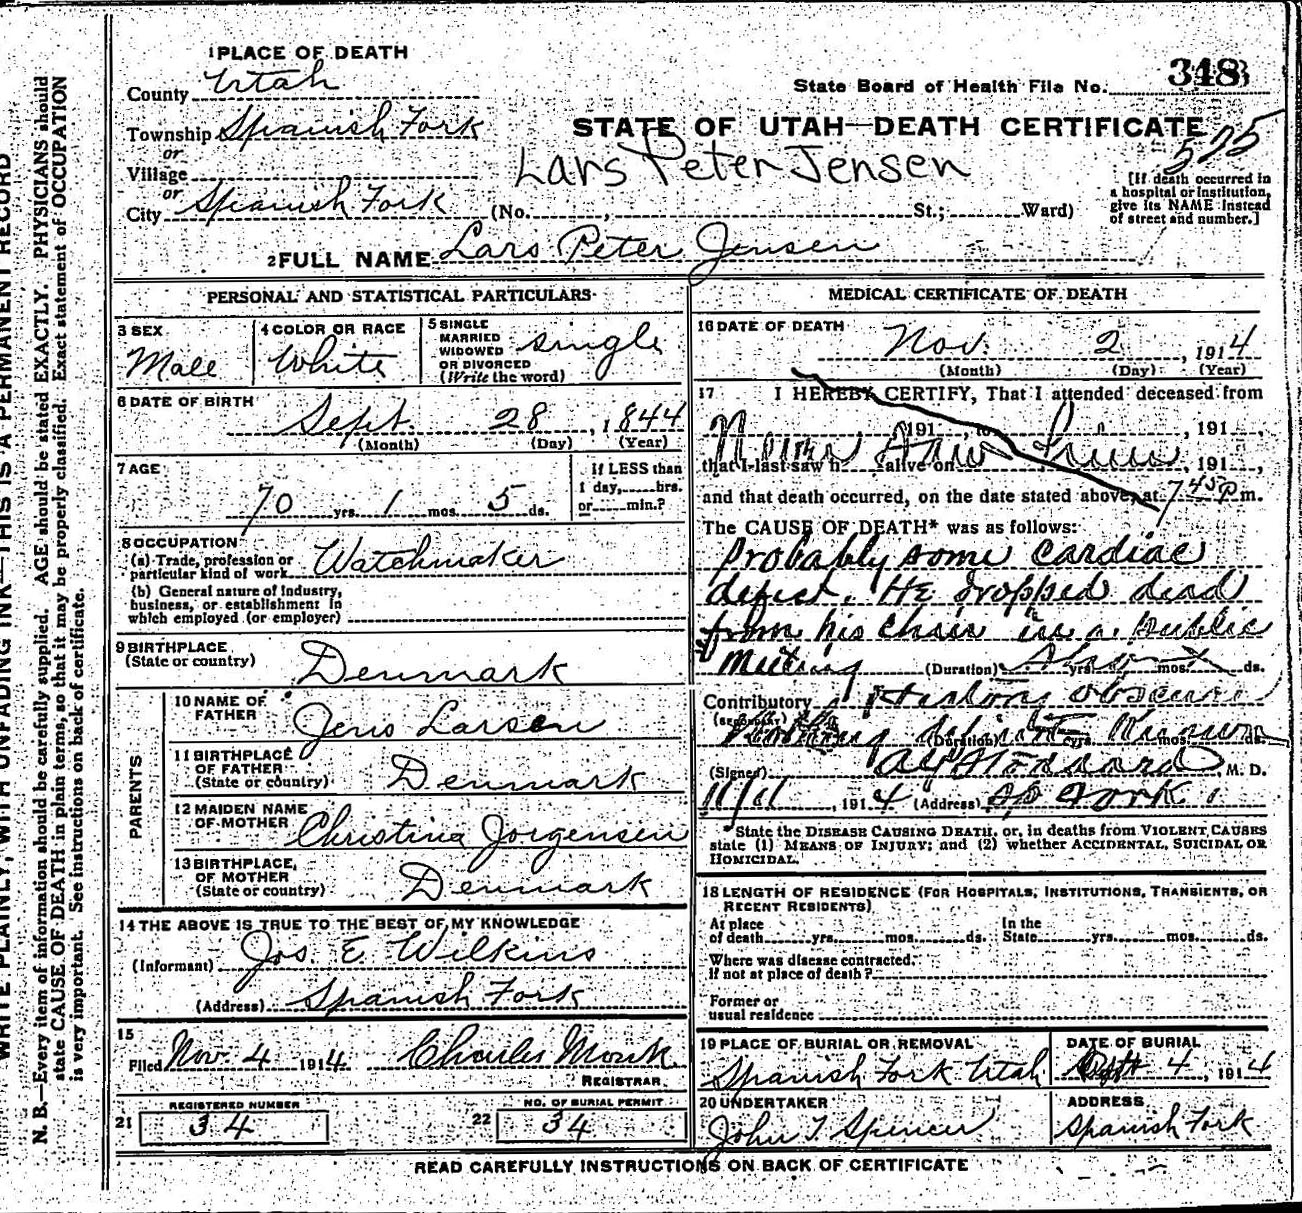 WRITE PLAINLY, WITH UNFADING INK—THIS IS A PERMANENT RECORD
N. B.—Every item of information should be carefully supplied. AGE should be stated EXACTLY. PHYSICIANS should
state CAUSE OF DEATH in plain terms, so that it may be properly classified. Exact statement of OCCUPATION
is very important. See instructions on back of certificate.
1 PLACE OF DEATH
County Utah
Township Spanish Fork
or
Village
or
City Spanish Fork
State Board of Health File No. 348
STATE OF UTAH—DEATH CERTIFICATE
575
Lars Peter Jensen
(No. , St.; Ward)
[If death occurred in
a hospital or institution,
give its NAME instead
of street and number.]
2 FULL NAME Lars Peter Jensen
PERSONAL AND STATISTICAL PARTICULARS
3 SEX
Male
4 COLOR OR RACE
White
5 SINGLE
MARRIED
WIDOWED
OR DIVORCED
(Write the word)
single
6 DATE OF BIRTH
Sept. 28, 1844
(Month) (Day) (Year)
7 AGE
70 yrs. 1 mos. 5 ds.
If LESS than
1 day, hrs.
or min.?
8 OCCUPATION
(a) Trade, profession or
particular kind of work Watchmaker
(b) General nature of Industry,
business, or establishment in
which employed (or employer)
9 BIRTHPLACE
(State or country) Denmark
PARENTS
10 NAME OF
FATHER Jens Larsen
11 BIRTHPLACE
OF FATHER
(State or country) Denmark
12 MAIDEN NAME
OF MOTHER Christina Jorgensen
13 BIRTHPLACE
OF MOTHER
(State or country) Denmark
14 THE ABOVE IS TRUE TO THE BEST OF MY KNOWLEDGE
(Informant) Jos. E. Wilkins
(Address) Spanish Fork
15
Filed Nov. 4 1914 Charles Monk
REGISTRAR
21 REGISTERED NUMBER
34
22 NO. OF BURIAL PERMIT
34
MEDICAL CERTIFICATE OF DEATH
16 DATE OF DEATH
Nov. 2, 1914
(Month) (Day) (Year)
17 I HEREBY CERTIFY, That I attended deceased from
, 191 , to , 191 ,
that I last saw h alive on , 191 ,
and that death occurred, on the date stated above, at 7 45 P m.
The CAUSE OF DEATH* was as follows:
Probably some cardiac
defect. He dropped dead
from his chair in a public
meeting (Duration) yrs. mos. ds.
Contributory History obscure
(SECONDARY)
(Duration) yrs. mos. ds.
(Signed) Stoddard M. D.
, 1914 (Address) Sp Fork
*State the DISEASE CAUSING DEATH, or, in deaths from VIOLENT CAUSES
state (1) MEANS OF INJURY; and (2) whether ACCIDENTAL, SUICIDAL OR
HOMICIDAL.
18 LENGTH OF RESIDENCE (FOR HOSPITALS, INSTITUTIONS, TRANSIENTS, OR
RECENT RESIDENTS)
At place
of death yrs. mos. ds.
In the
State yrs. mos. ds.
Where was disease contracted,
if not at place of death?
Former or
usual residence
19 PLACE OF BURIAL OR REMOVAL
Spanish Fork Utah
DATE OF BURIAL
4, 1914
20 UNDERTAKER
John T Spencer
ADDRESS
Spanish Fork
READ CAREFULLY INSTRUCTIONS ON BACK OF CERTIFICATE